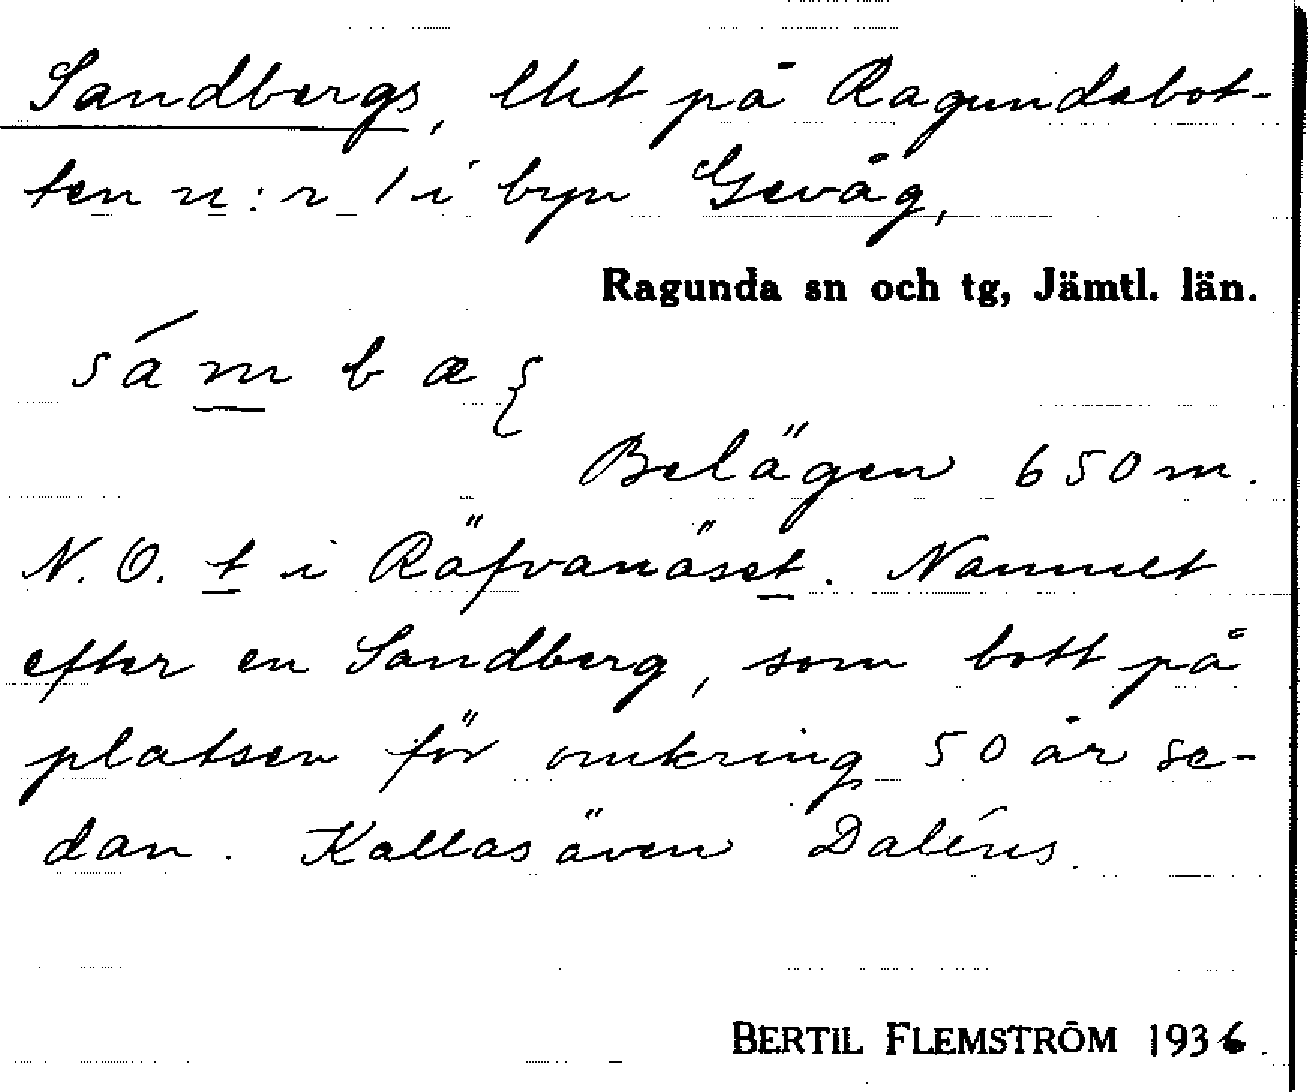 Sandbergs, lht på Ragundabot-
ten n:r 1 i byn Gevåg,
Ragunda sn och tg, Jämtl. län.
Belägen 650 m.
N. O. t i Räfvanäset. Namnet
efter en Sandberg, som bott på
platsen för omkring 50 år se-
dan. Kallas även Daléns.
BERTIL FLEMSTRÖM 1936.